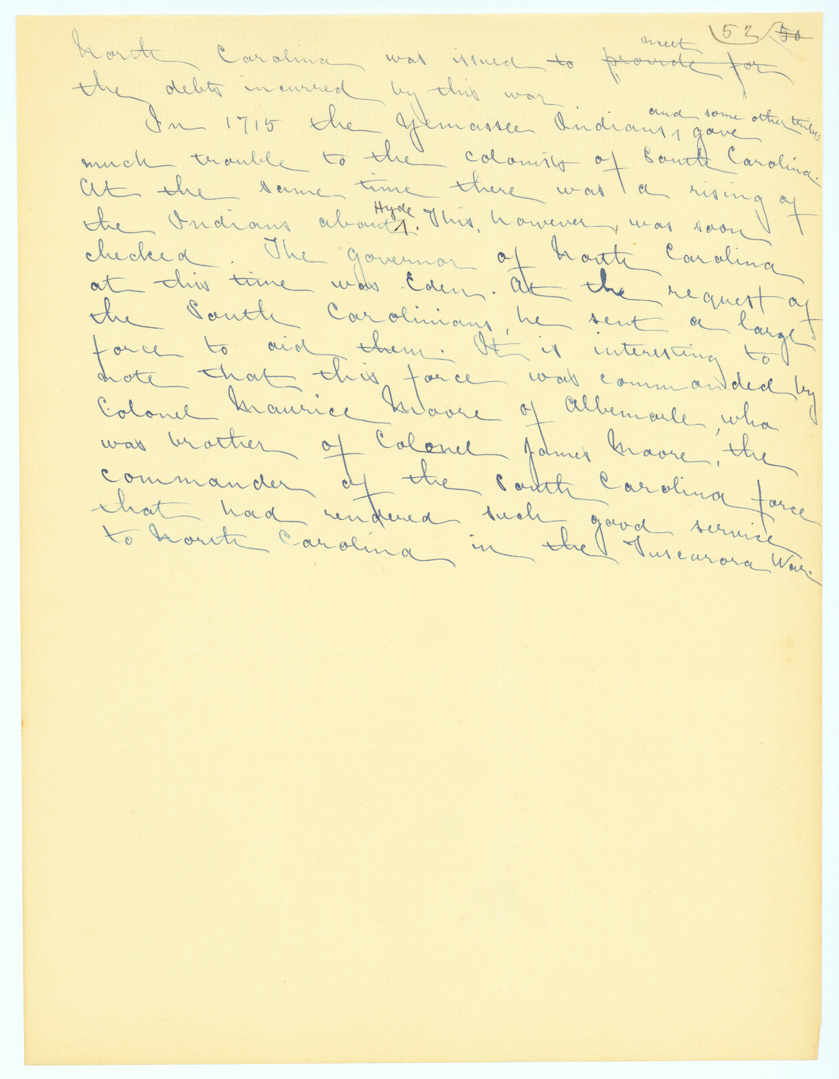 52 50
meet
North Carolina was issued to provide for
the debts incurred by this war.
and some other tribes
In 1715 the Yemassee Indians, gave
much trouble to the colonists of South Carolina.
At the same time there was a rising of
Hyde
the Indians about. This, however, was soon
checked. The governor of North Carolina
at this time was Eden. At the request of
the South Carolinians, he sent a large
force to aid them. It is interesting to
note that this force was commanded by
Colonel Maurice Moore of Albemarle, who
was brother of Colonel James Moore, the
commander of the South Carolina force
that had rendered such good service
to North Carolina in the Tuscarora War.